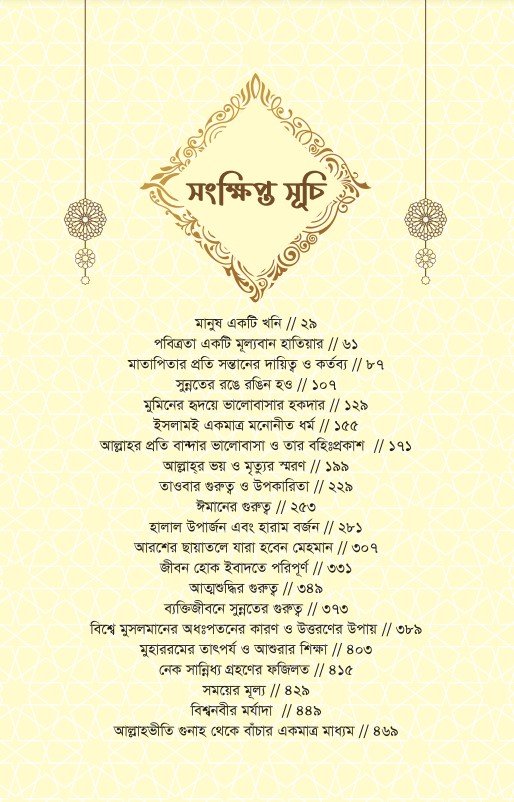 সংক্ষিপ্ত সূচি
মানুষ একটি খনি // ২৯
পবিত্রতা একটি মূল্যবান হাতিয়ার // ৬১
মাতাপিতার প্রতি সন্তানের দায়িত্ব ও কর্তব্য // ৮৭
সুন্নতের রঙে রঙিন হও // ১০৭
মুমিনের হৃদয়ে ভালোবাসার হকদার // ১২৯
ইসলামই একমাত্র মনোনীত ধর্ম // ১৫৫
আল্লাহর প্রতি বান্দার ভালোবাসা ও তার বহিঃপ্রকাশ // ১৭১
আল্লাহ্‌র ভয় ও মৃত্যুর স্মরণ // ১৯৯
তাওবার গুরুত্ব ও উপকারিতা // ২২৯
ঈমানের গুরুত্ব // ২৫৩
হালাল উপার্জন এবং হারাম বর্জন // ২৮১
আরশের ছায়াতলে যারা হবেন মেহমান // ৩০৭
জীবন হোক ইবাদতে পরিপূর্ণ // ৩৩১
আত্মশুদ্ধির গুরুত্ব // ৩৪৯
ব্যক্তিজীবনে সুন্নতের গুরুত্ব // ৩৭৩
বিশ্বে মুসলমানের অধঃপতনের কারণ ও উত্তরণের উপায় // ৩৮৯
মুহাররমের তাৎপর্য ও আশুরার শিক্ষা // ৪০৩
নেক সান্নিধ্য গ্রহণের ফজিলত // ৪১৫
সময়ের মূল্য // ৪২৯
বিশ্বনবীর মর্যাদা // ৪৪৯
আল্লাহভীতি গুনাহ থেকে বাঁচার একমাত্র মাধ্যম // ৪৬৯